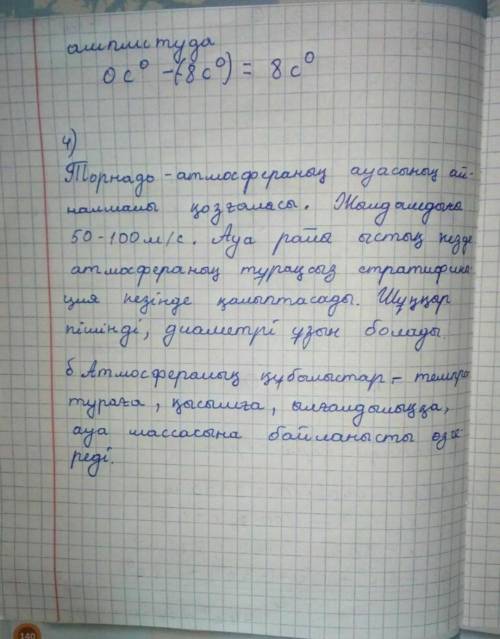 амплитуда
0 с° -(8с°) = 8 с°
4)
Торнадо - атмосфераның ауасының ай-
налмалы қозғаласы. Жылдамдығы
50-100 м/с. Ауа райы ыстық кезде
атмосфераның тұрақсыз стратифика
ция кезінде қалыптасады. Шұңқыр
пішінді, диаметрі ұзын болады.
б Атмосфералық құбылыстар - темпра
тураға, қысымға, ылғалдылыққа,
ауа массасына байланысты өзге
реді.
140